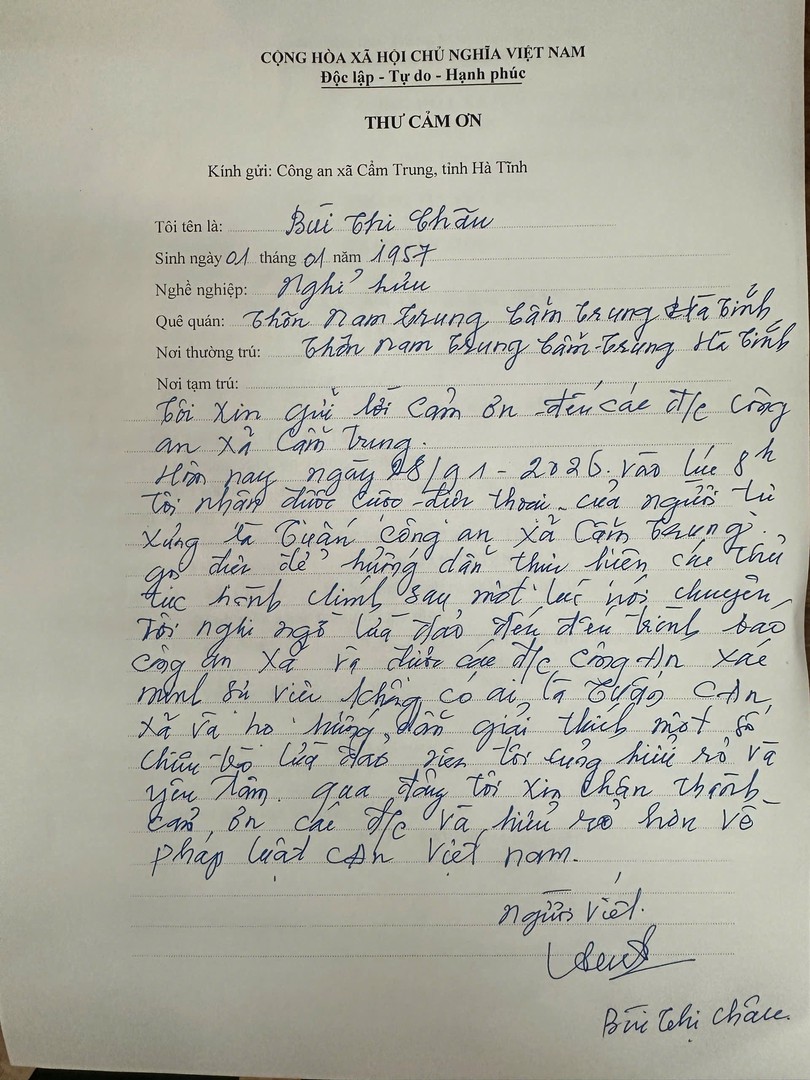 CỘNG HÒA XÃ HỘI CHỦ NGHĨA VIỆT NAM
Độc lập - Tự do - Hạnh phúc
THƯ CẢM ƠN
Kính gửi: Công an xã Cẩm Trung, tỉnh Hà Tĩnh
Tôi tên là: Bùi Thị Châu
Sinh ngày 01 tháng 01 năm 1957
Nghề nghiệp: Nghỉ hưu
Quê quán: Thôn Nam Trung Cẩm Trung Hà Tĩnh
Nơi thường trú: Thôn Nam Trung Cẩm Trung Hà Tĩnh
Nơi tạm trú:
Tôi xin gửi lời cảm ơn đến các đ/c Công
an xã Cẩm Trung.
Hôm nay ngày 28/01-2026. vào lúc 8h
Tôi nhận được cuộc điện thoại của người tự
xưng là Tuấn công an xã Cẩm Trung.
gọi điện để hướng dẫn thực hiện các thủ
tục hành chính sau một lúc nói chuyện
Tôi nghi ngờ lừa đảo đến trình báo
công an xã và được các đ/c công an xác
minh sự việc không có ai là Tuấn CAn
xã và họ hướng dẫn giải thích một số
chiêu trò lừa đảo nên tôi cũng hiểu rõ và
yên tâm. qua đây tôi xin chân thành
cảm ơn các đ/c và hiểu rõ hơn về
pháp luật CAn Việt nam.
người viết.
Bùi Thị Châu.